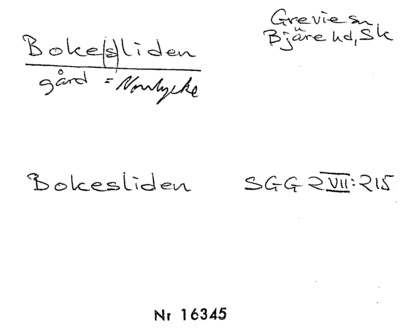 Bokesliden
gård = Norrlycke
Grevie sn
Bjäre hd, Sk
Bokesliden SGG 2 VII: 215
Nr 16345